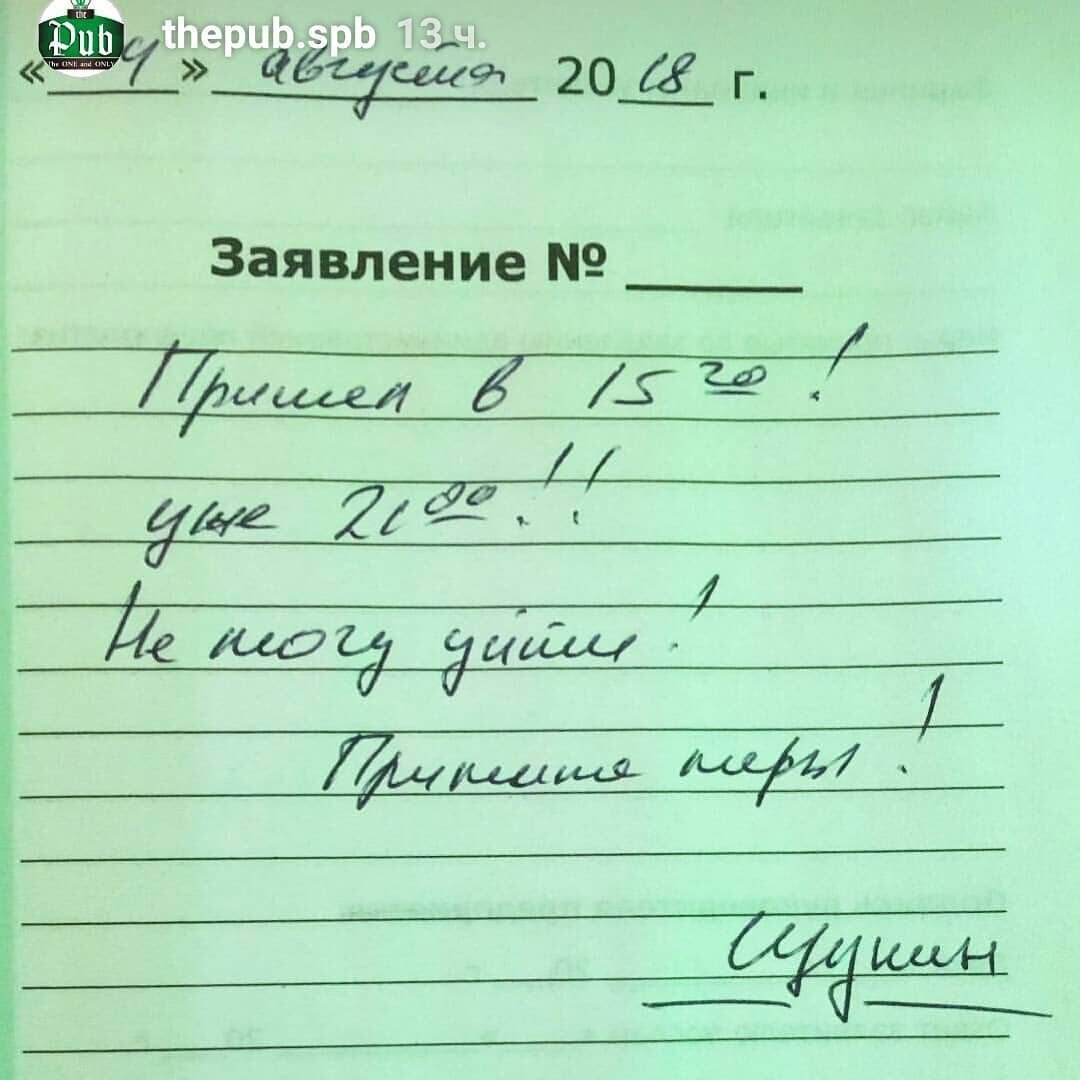 the
Pub
The ONE and ONLY
thepub.spb 13 ч.
« 4 » августа 2018 г.
Заявление № ____
Пришел в 15 20!
уже 21 00!!
Не могу уйти!
Примите меры!
Щукин